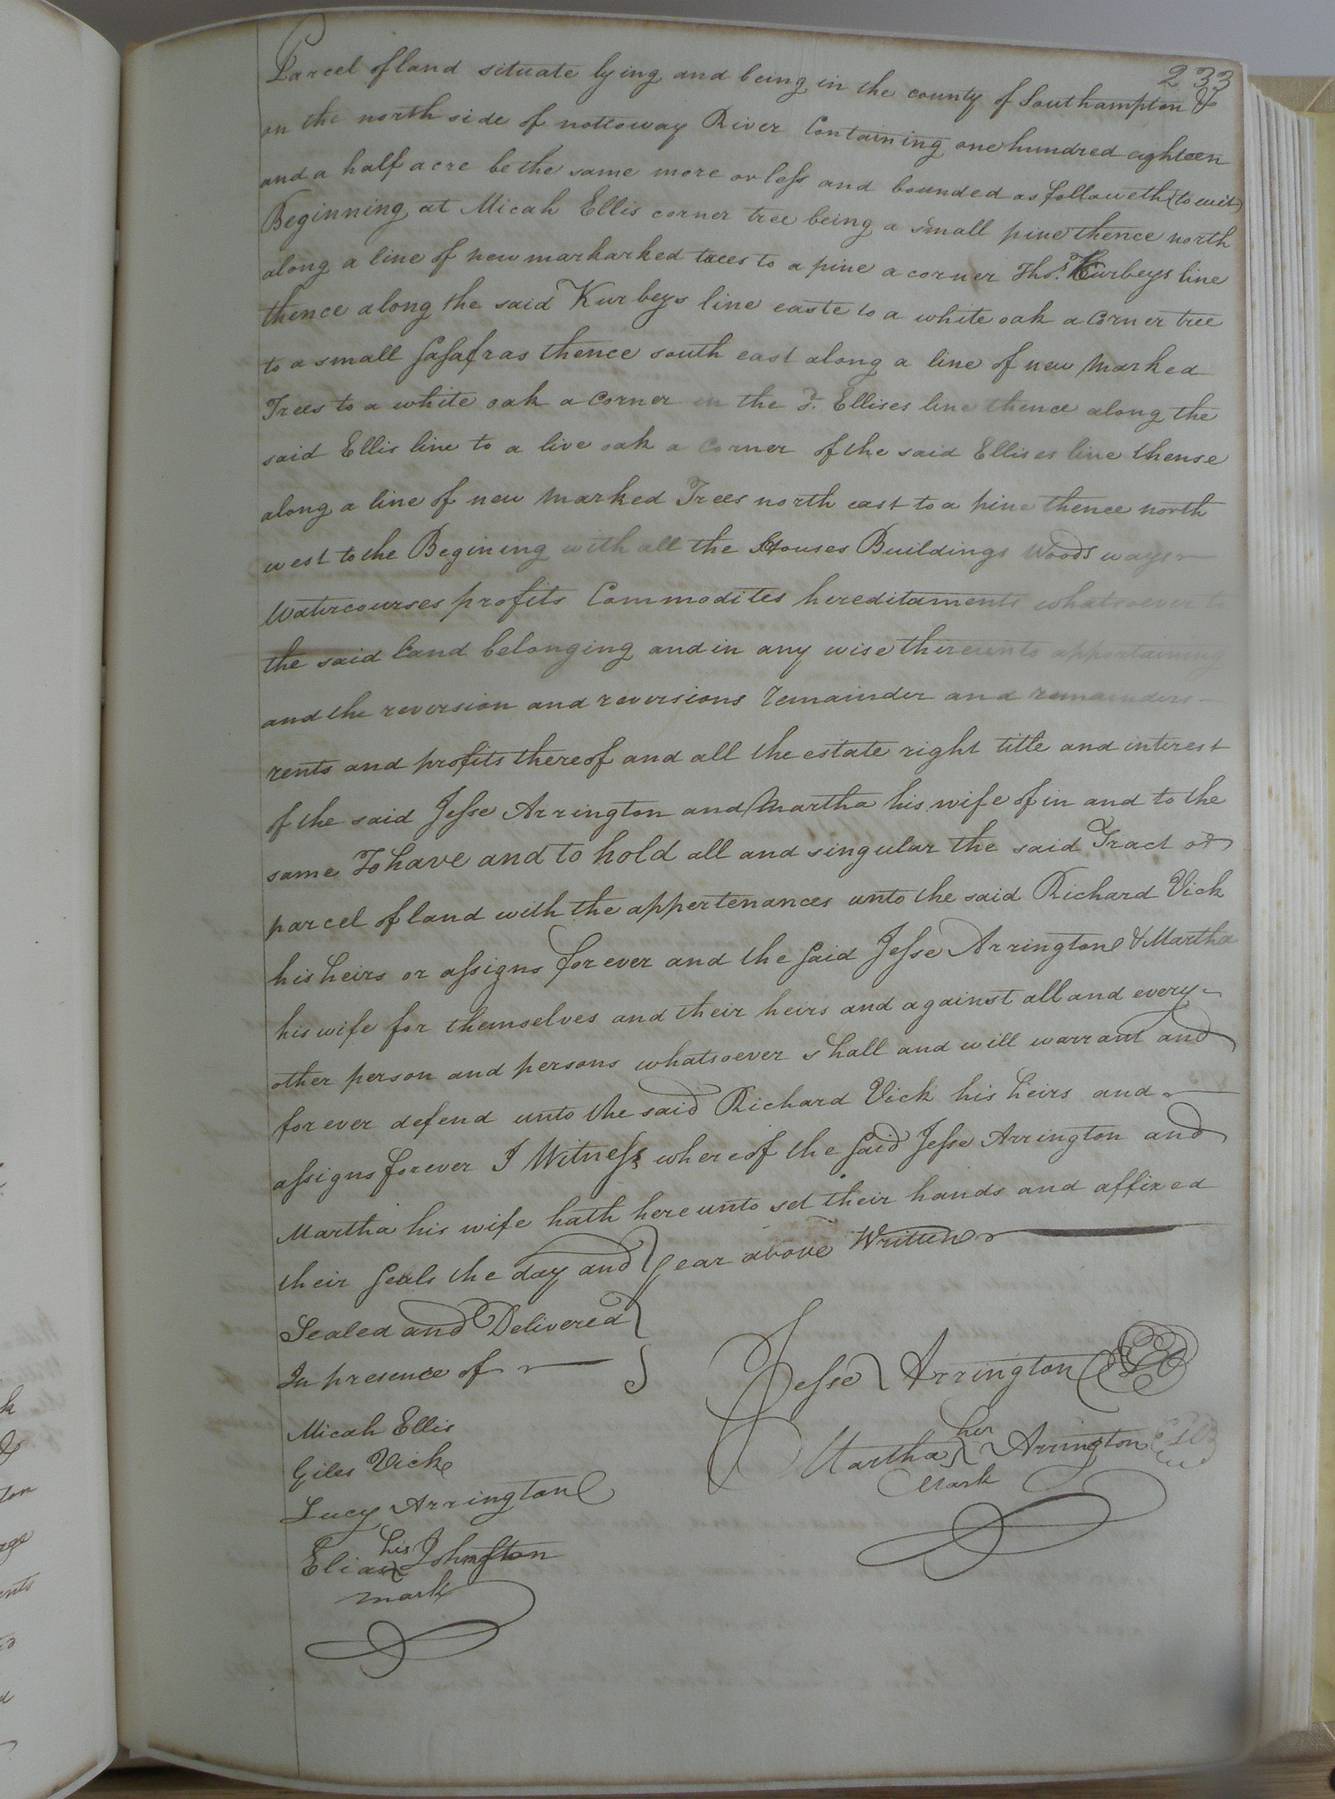 233
Parcel of land situate lying and being in the county of Southampton &
on the north side of nottoway River Containing one hundred eighteen
and a half acre be the same more or less and bounded as followeth (to wit)
Beginning at Micah Ellis corner tree being a small pine thence north
along a line of new markarked trees to a pine a corner Thos. Kurbeys line
thence along the said Kurbeys line easte to a white oak a Corner tree
to a small Sasafras thence south east along a line of new Marked
Trees to a white oak a Corner in the sd. Ellises line thence along the
said Ellis line to a live oak a Corner of the said Ellises line thense
along a line of new Marked Trees north east to a pine thence north
west to the Begining with all the Houses Buildings Woods ways
Watercourses profits Commodites hereditaments whatsoever to
the said Land belonging and in any wise thereunto appertaining
and the reversion and reversions remainder and remainders
rents and profits thereof and all the estate right title and interest
of the said Jesse Arrington and Martha his wife of in and to the
same To have and to hold all and singular the said Tract or
parcel of land with the appertenances unto the said Richard Vick
his heirs or assigns for ever and the said Jesse Arrington & Martha
his wife for themselves and their heirs and against all and every
other person and persons whatsoever shall and will warrant and
for ever defend unto the said Richard Vick his heirs and
assigns forever I Witness whereof the said Jesse Arrington and
Martha his wife hath hereunto set their hands and affixed
their seals the day and year above Written
Sealed and Delivered
In presence of
Jesse Arrington
Micah Ellis
her
Martha Arrington
Mark
Giles Vick
Lucy Arrington
his
Elias Johnston
mark